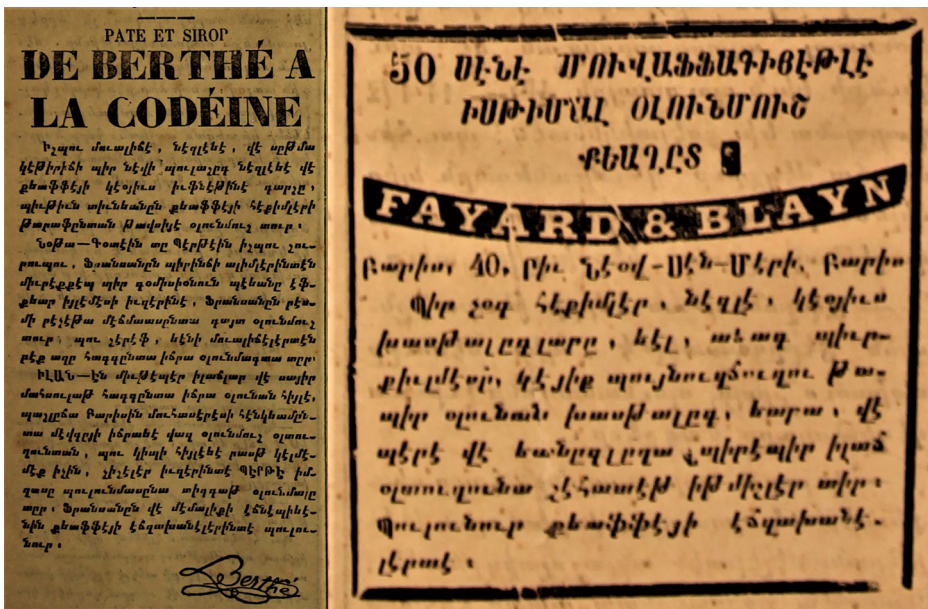 PATE ET SIROP
DE BERTHÉ A
LA CODÉINE
Իշպու մուալիճէ, նէզլէեէ, վէ սըթմա
կէթիրիճի պիր նէվի պուլաշըգ նէզլէեէ վէ
քեաֆֆէյի կէօյիւս իւֆնէթինէ գարշը,
պիւթիւն տիւնեանըն քեաֆֆէյի հէքիմլէրի
թարաֆընտան թավսիյէ օլունմուշ տուր։
Նօթա—Գօտէին տը Պէրթէին իշպու շու-
րուպու, Ֆրանսանըն պիրինճի ալիմլէրինտէն
միւրէքքէպ պիր գօմիսիօնուն պէեանը էֆ-
քեար իյլէմէսի իւզէրինէ, Ֆրանսանըն րէս-
մի րէչէթա մէճմուասընտա գայտ օլունմուշ
տուր, պու շէրէֆ, եէնի մուալիճէլէրտէն
րէք ազը հագգընտա իճրա օլունմագտա տըր։
ԻԼԱՆ—Էն միւթէպէր իլաճլար վէ սայիր
մահսուլաթ հագգընտա իճրա օլունան հիյլէ,
պաշլըճա Բարիսին մուհասէրէսի հէնկեամըն-
տա մէվգըյի իճրաեէ վազ օլունմուշ օլտու-
ղունտան, պու կիպի հիյլէեէ րասթ կէլմէ-
մէք իչին, շիշէլէր իւզէրինտէ ՊԷՐԹԷ իմ-
զասը պուլունմասընա տիգգաթ օլունմալը
տըր։ Ֆրանսանըն վէ մէմալիքի էճնէպիեէ-
նին քեաֆֆէյի էճզախանէլէրինտէ պուլու-
նուր։
Berthé
50 ՍԷՆԷ ՄՈՒՎԱՖՖԱԳԻՅԷԹԼԷ
ԻՍԹԻՄԱԼ ՕԼՈՒՆՄՈՒՇ
ՔԵԱՂԸՏ
FAYARD & BLAYN
Բարիս, 40, րիւ Նէօվ-Սէն-Մէրի, Բարիս
Պիր չօգ հէքիմլէր, նէզլէ, կէօյիւս
խասթալըգլարը, եէլ, ազա պիւր-
քիւլմէսի, կէյիք պույնուզճուղու թա-
պիր օլունան խասթալըգ, եարա, վէ
պէրէ վէ եանըգլըղա պիրէպիր իլաճ
օլտուղունա շէհատէթ իթմիշլէր տիր։
Պուլունուր քեաֆֆէյի էճզախանէ-
լէրտէ։